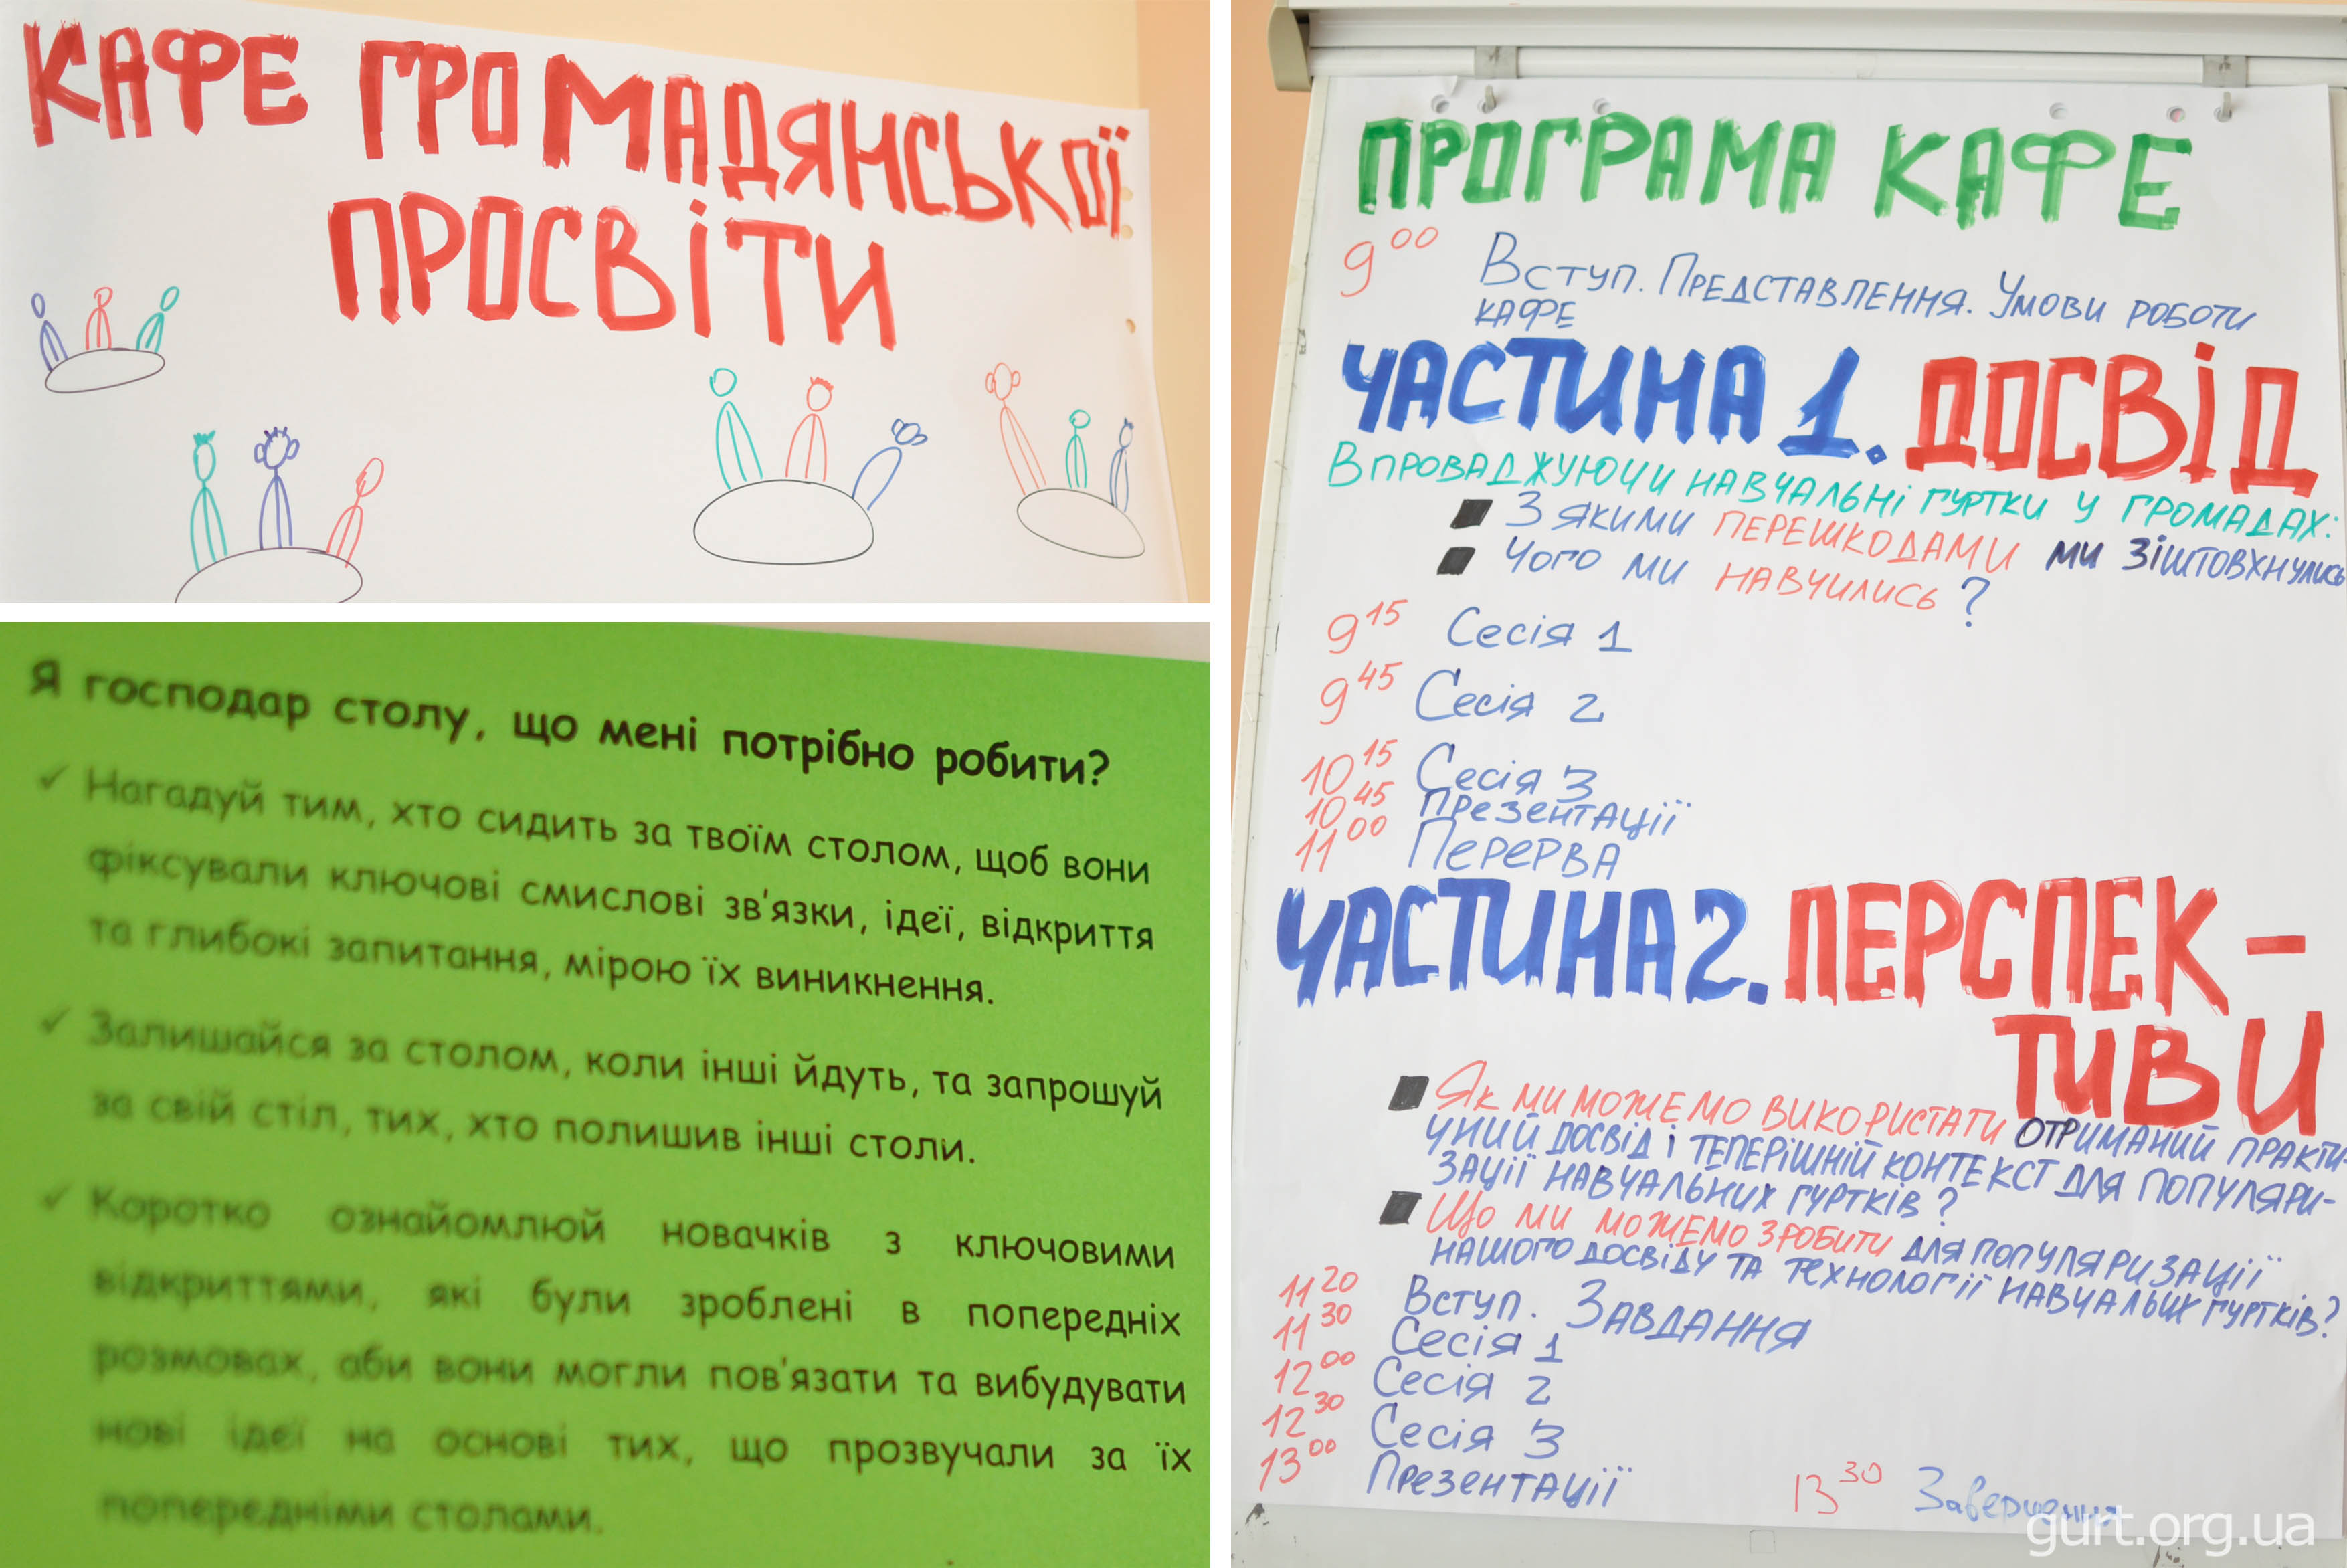 КАФЕ ГРОМАДЯНСЬКОЇ
ПРОСВІТИ
Я господар столу, що мені потрібно робити?
✓ Нагадуй тим, хто сидить за твоїм столом, щоб вони
фіксували ключові смислові зв'язки, ідеї, відкриття
та глибокі запитання, мірою їх виникнення.
✓ Залишайся за столом, коли інші йдуть, та запрошуй
за свій стіл, тих, хто полишив інші столи.
✓ Коротко ознайомлюй новачків з ключовими
відкриттями, які були зроблені в попередніх
розмовах, аби вони могли пов'язати та вибудувати
нові ідеї на основі тих, що прозвучали за їх
попередніми столами.
ПРОГРАМА КАФЕ
9 00 Вступ. Представлення. Умови роботи
кафе
ЧАСТИНА 1. ДОСВІД
Впроваджуючи навчальні гуртки у громадах:
■ З якими перешкодами ми зіштовхнулись
■ Чого ми навчились?
9 15 Сесія 1
9 45 Сесія 2
10 15 Сесія 3
10 45 Презентації
11 00 Перерва
ЧАСТИНА 2. ПЕРСПЕК-
ТИВИ
■ Як ми можемо використати отриманий практи-
чний досвід і теперішній контекст для популяри-
зації навчальних гуртків?
■ Що ми можемо зробити для популяризації
нашого досвіду та технології навчальих гуртків?
11 20 Вступ. Завдання
11 30 Сесія 1
12 00 Сесія 2
12 30 Сесія 3
13 00 Презентації
13 30 Завершення
gurt.org.ua